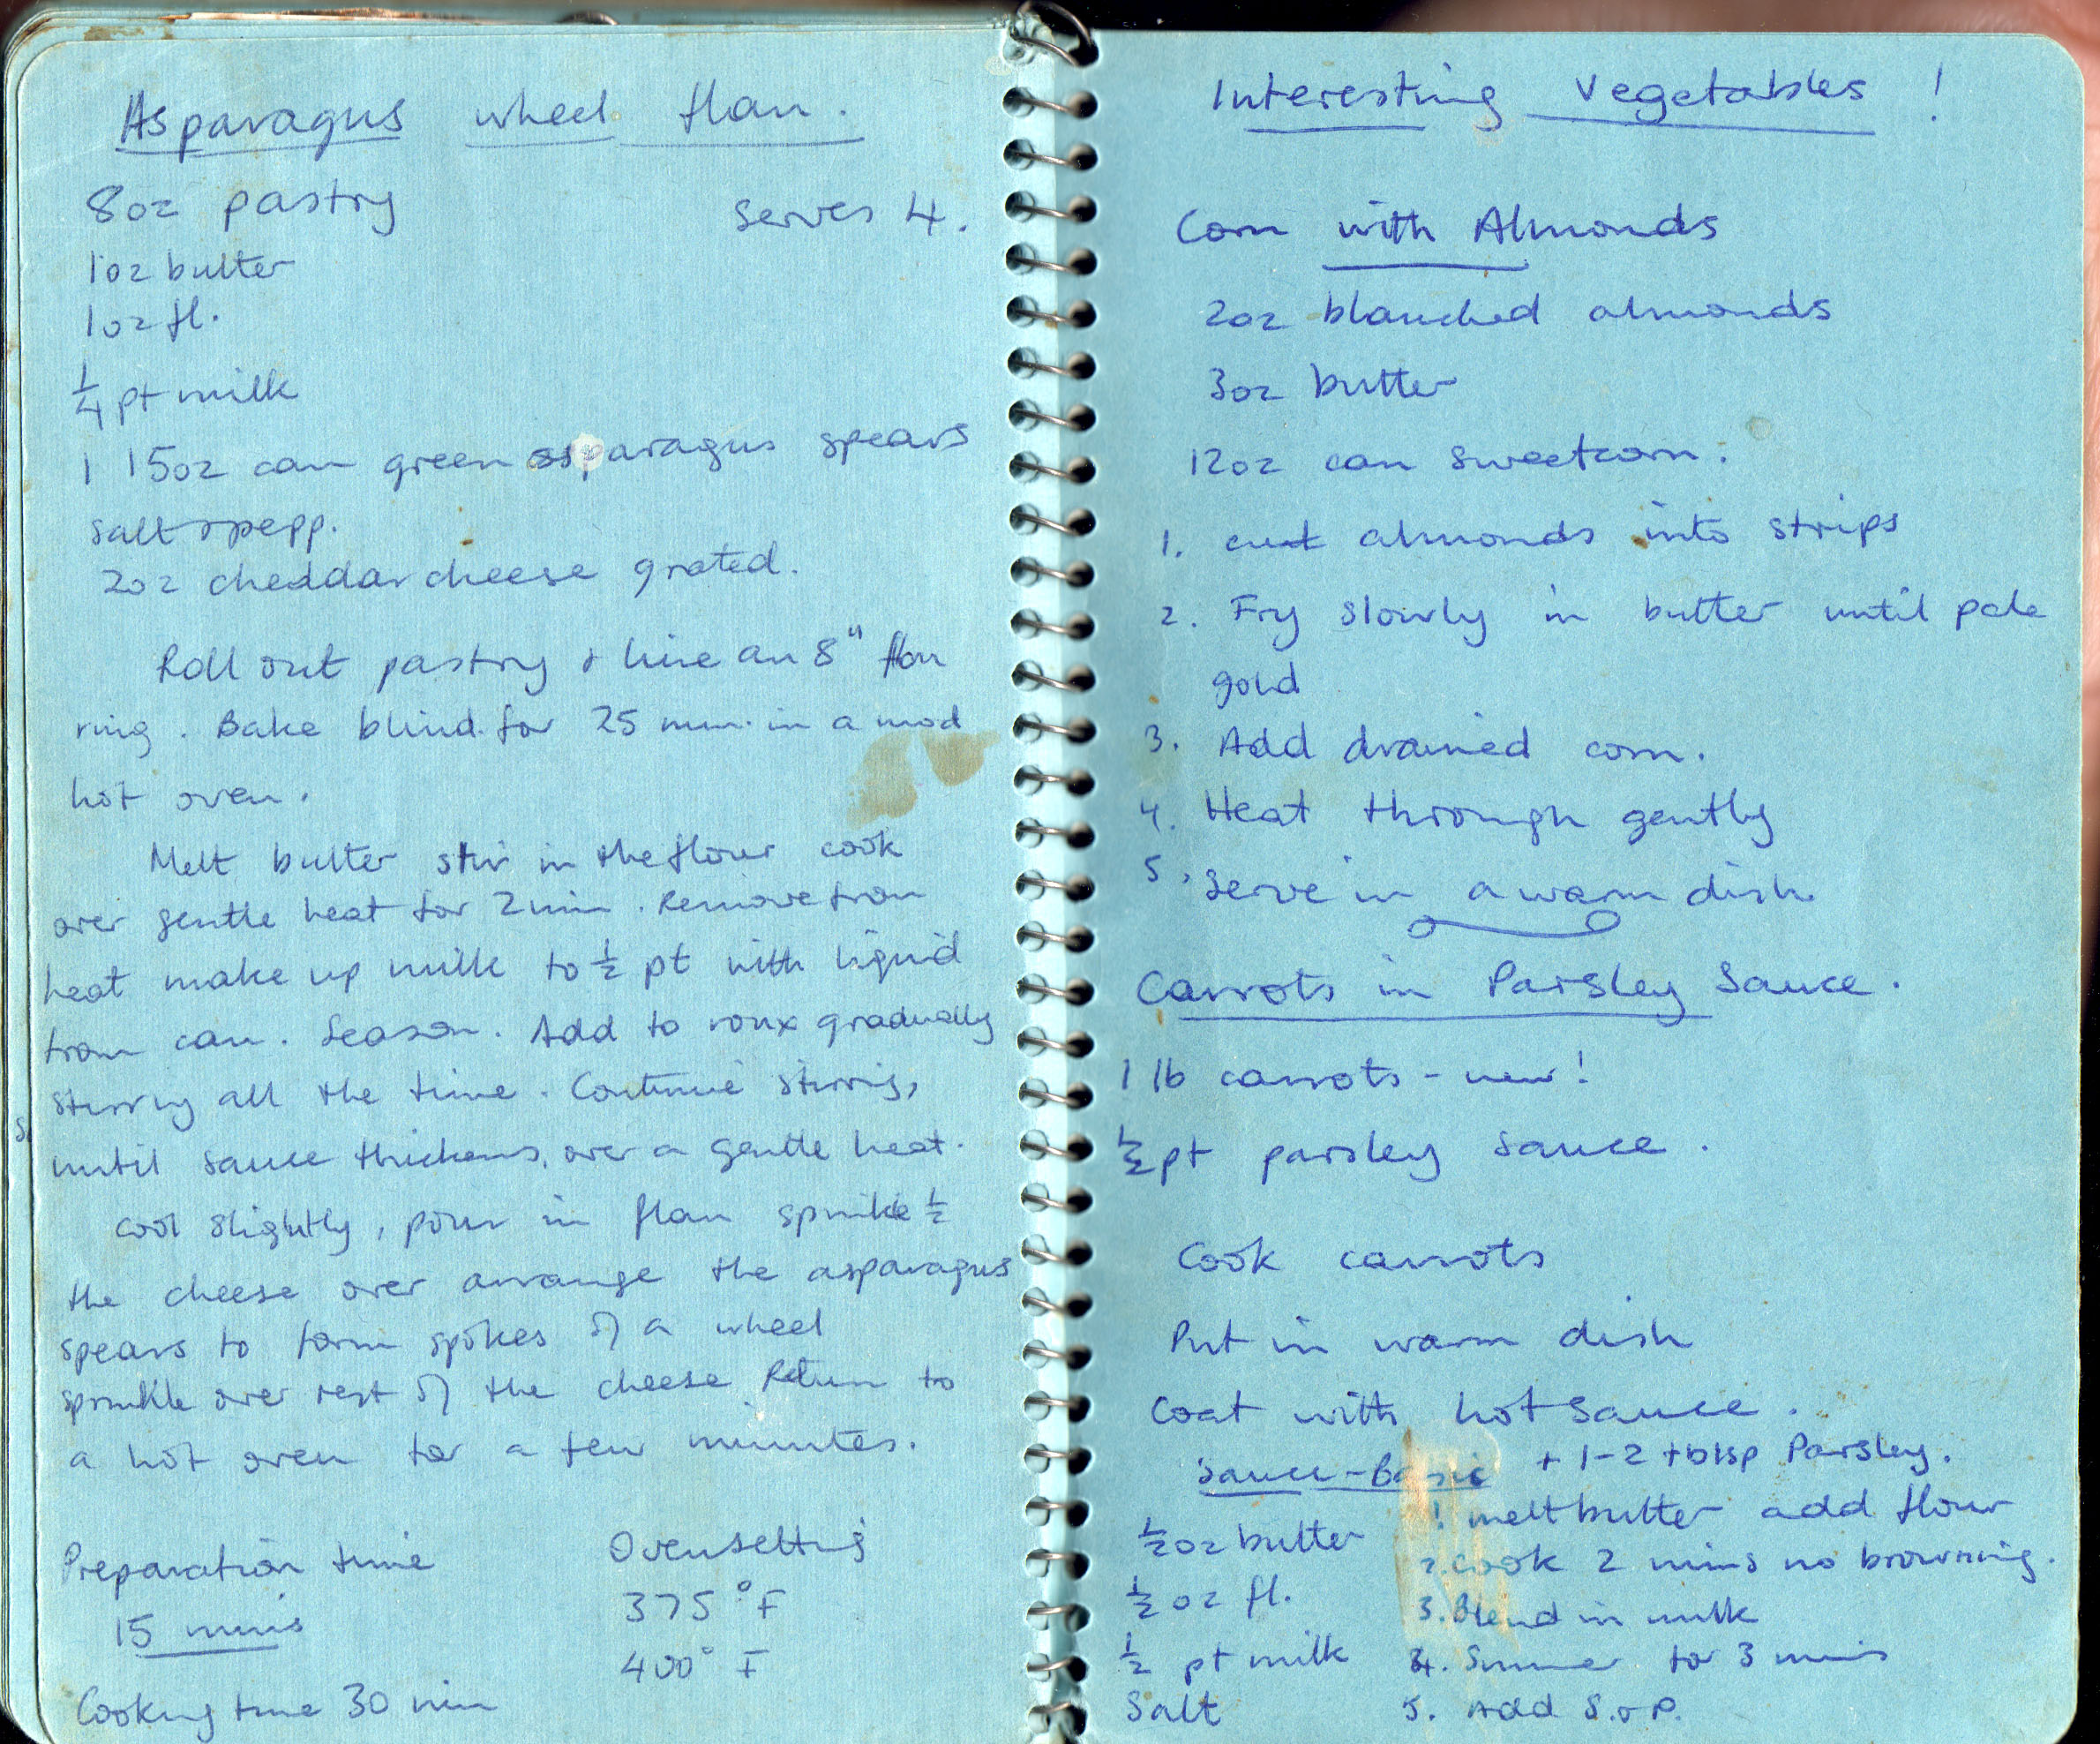 Asparagus wheel flan.
8oz pastry serves 4.
1oz butter
1oz fl.
1/4 pt milk
1 15oz can green asparagus spears
salt & pepp.
2oz cheddar cheese grated.
Roll out pastry & line an 8" flan
ring. Bake blind for 25 min. in a mod
hot oven.
Melt butter stir in the flour cook
over gentle heat for 2 min. Remove from
heat make up milk to 1/2 pt with liquid
from can. Season. Add to roux gradually
stirring all the time. Continue stirring,
until sauce thickens, over a gentle heat.
Cool slightly, pour in flan sprinkle 1/2
the cheese over arrange the asparagus
spears to form spokes of a wheel
sprinkle over rest of the cheese Return to
a hot oven for a few minutes.
Preparation time
15 mins
Cooking time 30 min
Oven setting
375°F
400°F
Interesting Vegetables!
Corn with Almonds
2oz blanched almonds
3oz butter
12oz can sweetcorn.
1. cut almonds into strips
2. Fry slowly in butter until pale
gold
3. Add drained corn.
4. Heat through gently
5, Serve in a warm dish.
Carrots in Parsley Sauce.
1 lb carrots - new!
1/2 pt parsley sauce.
Cook carrots
Put in warm dish
Coat with hot sauce.
Sauce - Basic + 1-2 tblsp Parsley.
1/2oz butter
1/2 oz fl.
1/2 pt milk
Salt
! melt butter add flour
2. Cook 2 mins no browning.
3. Blend in milk
4. Simmer for 3 mins
5. Add S. & P.